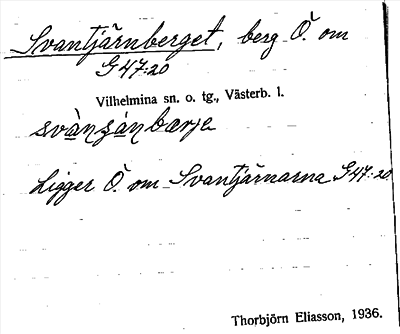 Svantjärnberget, berg Ö. om
G47:20
Vilhelmina sn. o. tg., Västerb. l.
Ligger Ö. om Svantjärnarna G47:20
Thorbjörn Eliasson, 1936.